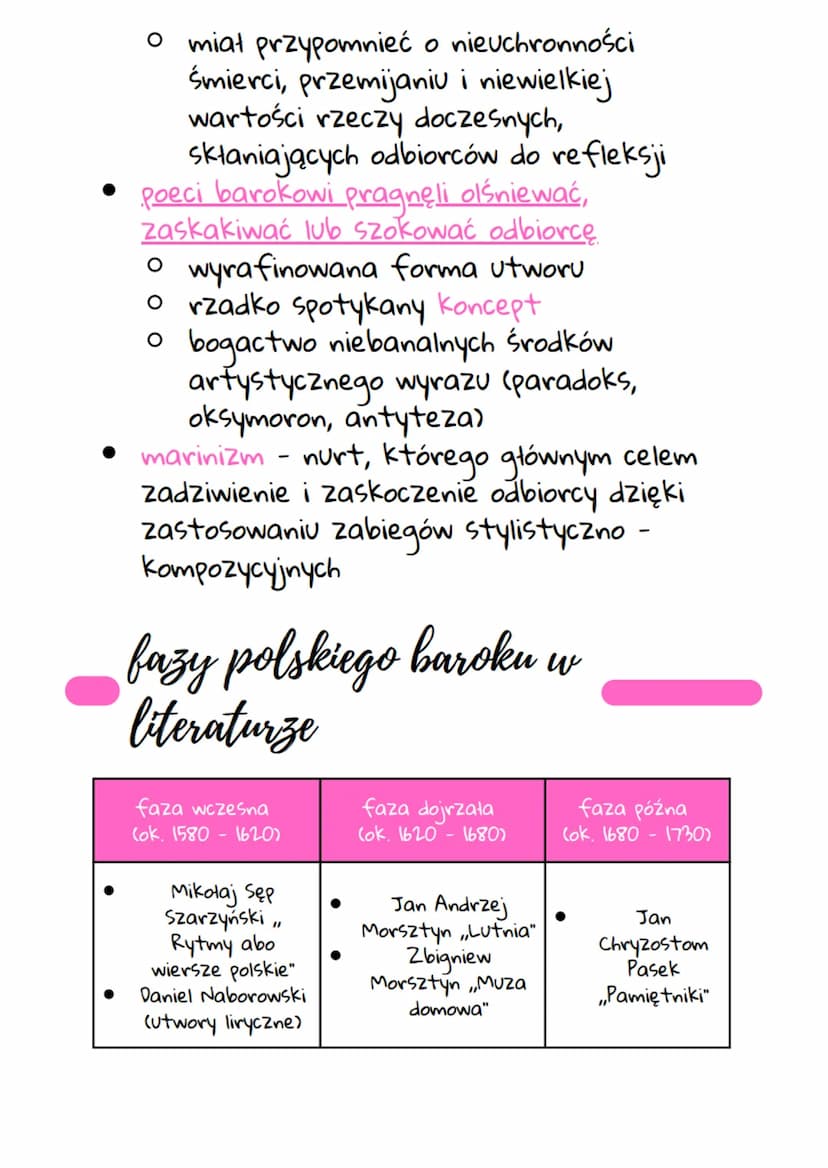 miał przypomnieć o nieuchronności
śmierci, przemijaniu i niewielkiej
wartości rzeczy doczesnych,
skłaniających odbiorców do refleksji
poeci barokowi pragnęli olśniewać,
zaskakiwać lub szokować odbiorcę
wyrafinowana forma utworu
rzadko spotykany koncept
bogactwo niebanalnych środków
artystycznego wyrazu (paradoks,
oksymoron, antyteza)
marinizm - nurt, którego głównym celem
zadziwienie i zaskoczenie odbiorcy dzięki
zastosowaniu zabiegów stylistyczno -
kompozycyjnych
fazy polskiego baroku w
literaturze
faza wczesna
(ok. 1580 - 1620)
Mikołaj Sęp
Szarzyński „
Rytmy abo
wiersze polskie"
Daniel Naborowski
(utwory liryczne)
faza dojrzała
(ok. 1620 - 1680)
Jan Andrzej
Morsztyn „Lutnia"
Zbigniew
Morsztyn „Muza
domowa"
faza późna
(ok. 1680 - 1730)
Jan
Chryzostom
Pasek
„Pamiętniki"